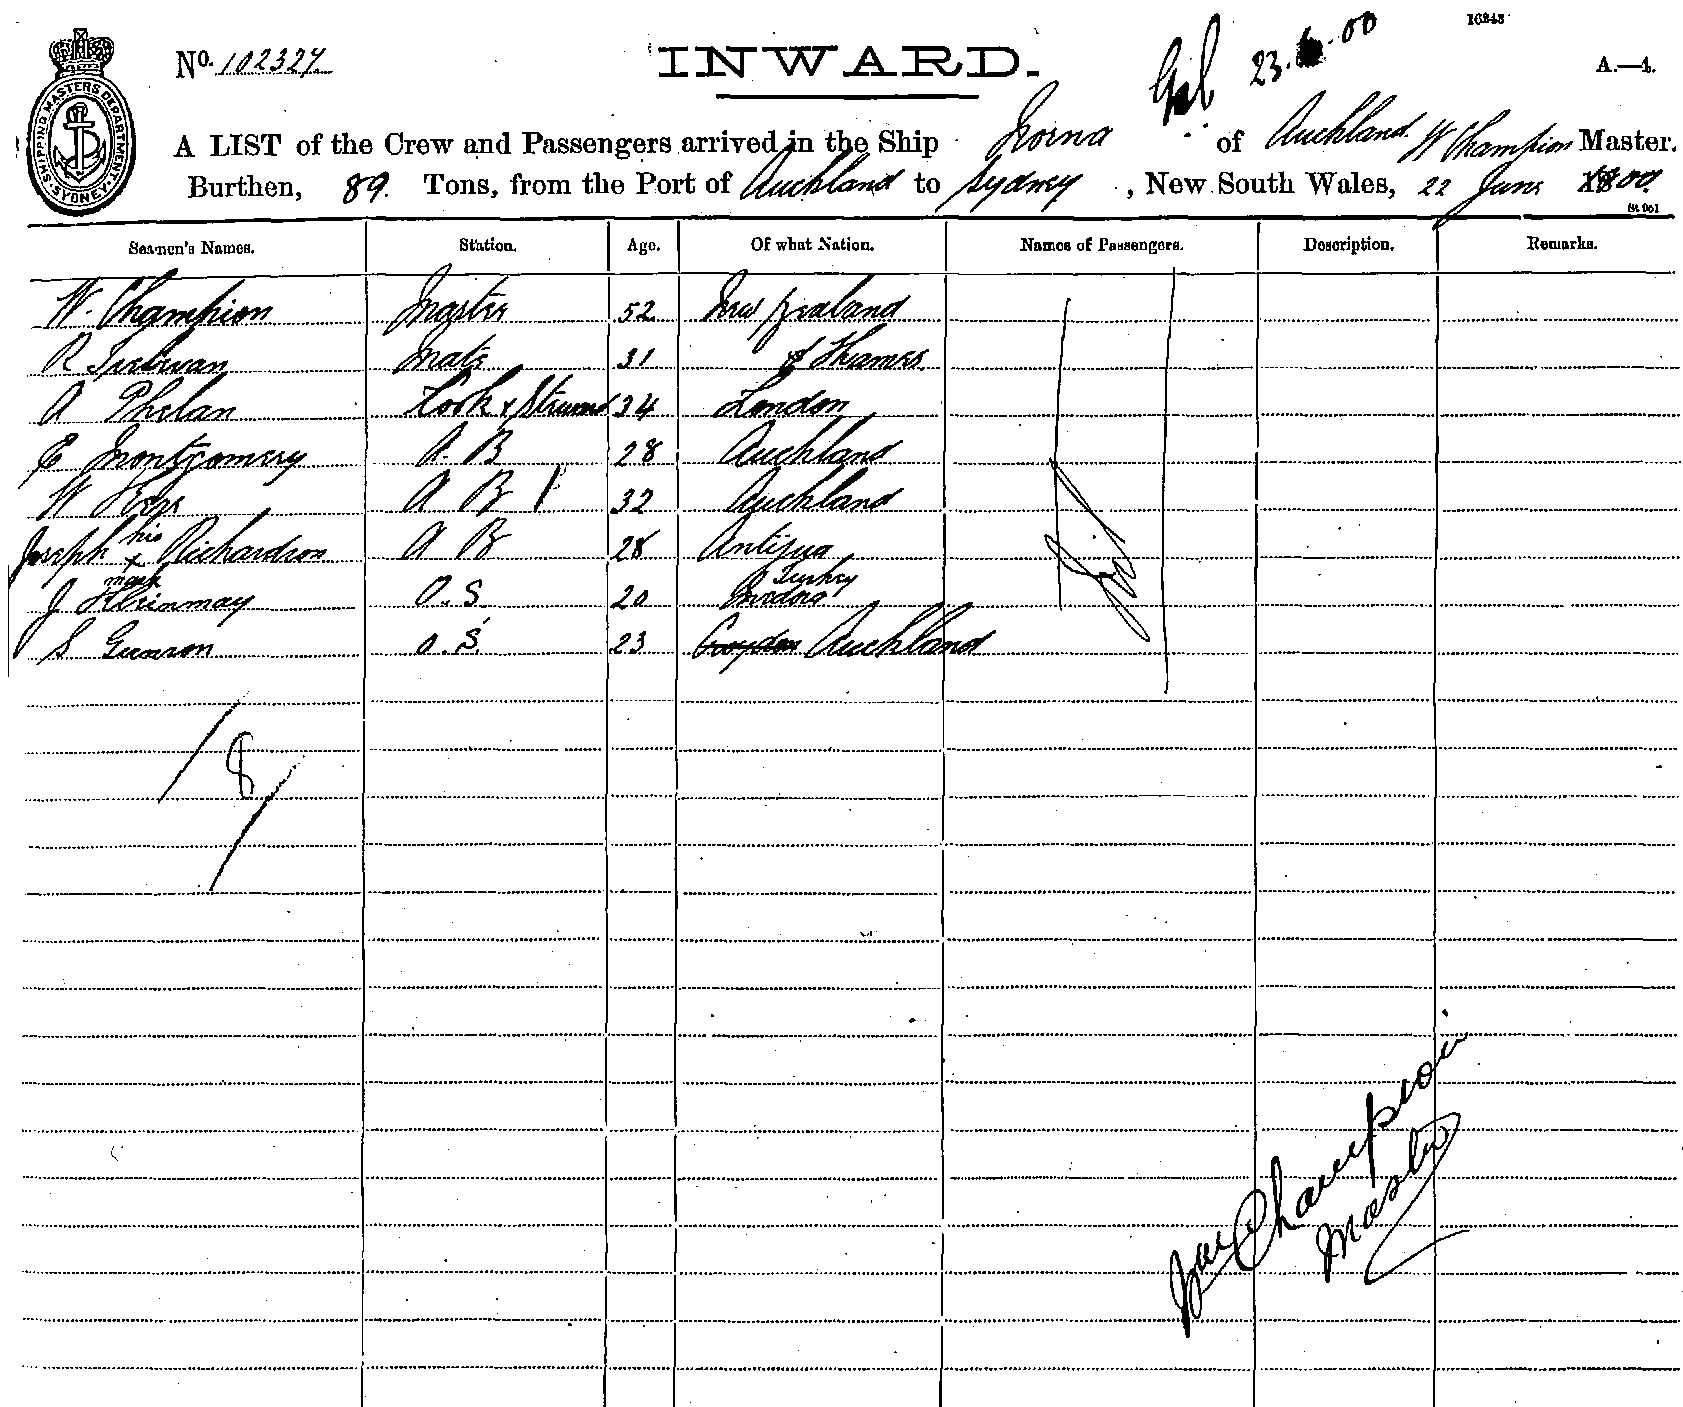 16243
No. 102327.
INWARD.
23. 6. 00
A.—4.
SHIPPING MASTERS DEPARTMENT SYDNEY
A LIST of the Crew and Passengers arrived in the Ship Norna of Auckland W Champion Master.
Burthen, 89. Tons, from the Port of Auckland to Sydney, New South Wales, 22 June 1800
Seamen's Names. Station. Age. Of what Nation. Names of Passengers. Description. Remarks.
W. Champion Master 52 New Zealand
R Mate 31 Thames
A Phelan Cook & 34 London
E Montgomery A. B 28 Auckland
W A B 32 Auckland
Joseph his x mark Richardson A B 28 Antigua
J O. S. 20 Turkey
S O. S. 23 Croydon Auckland
8
Wm Champion
Master